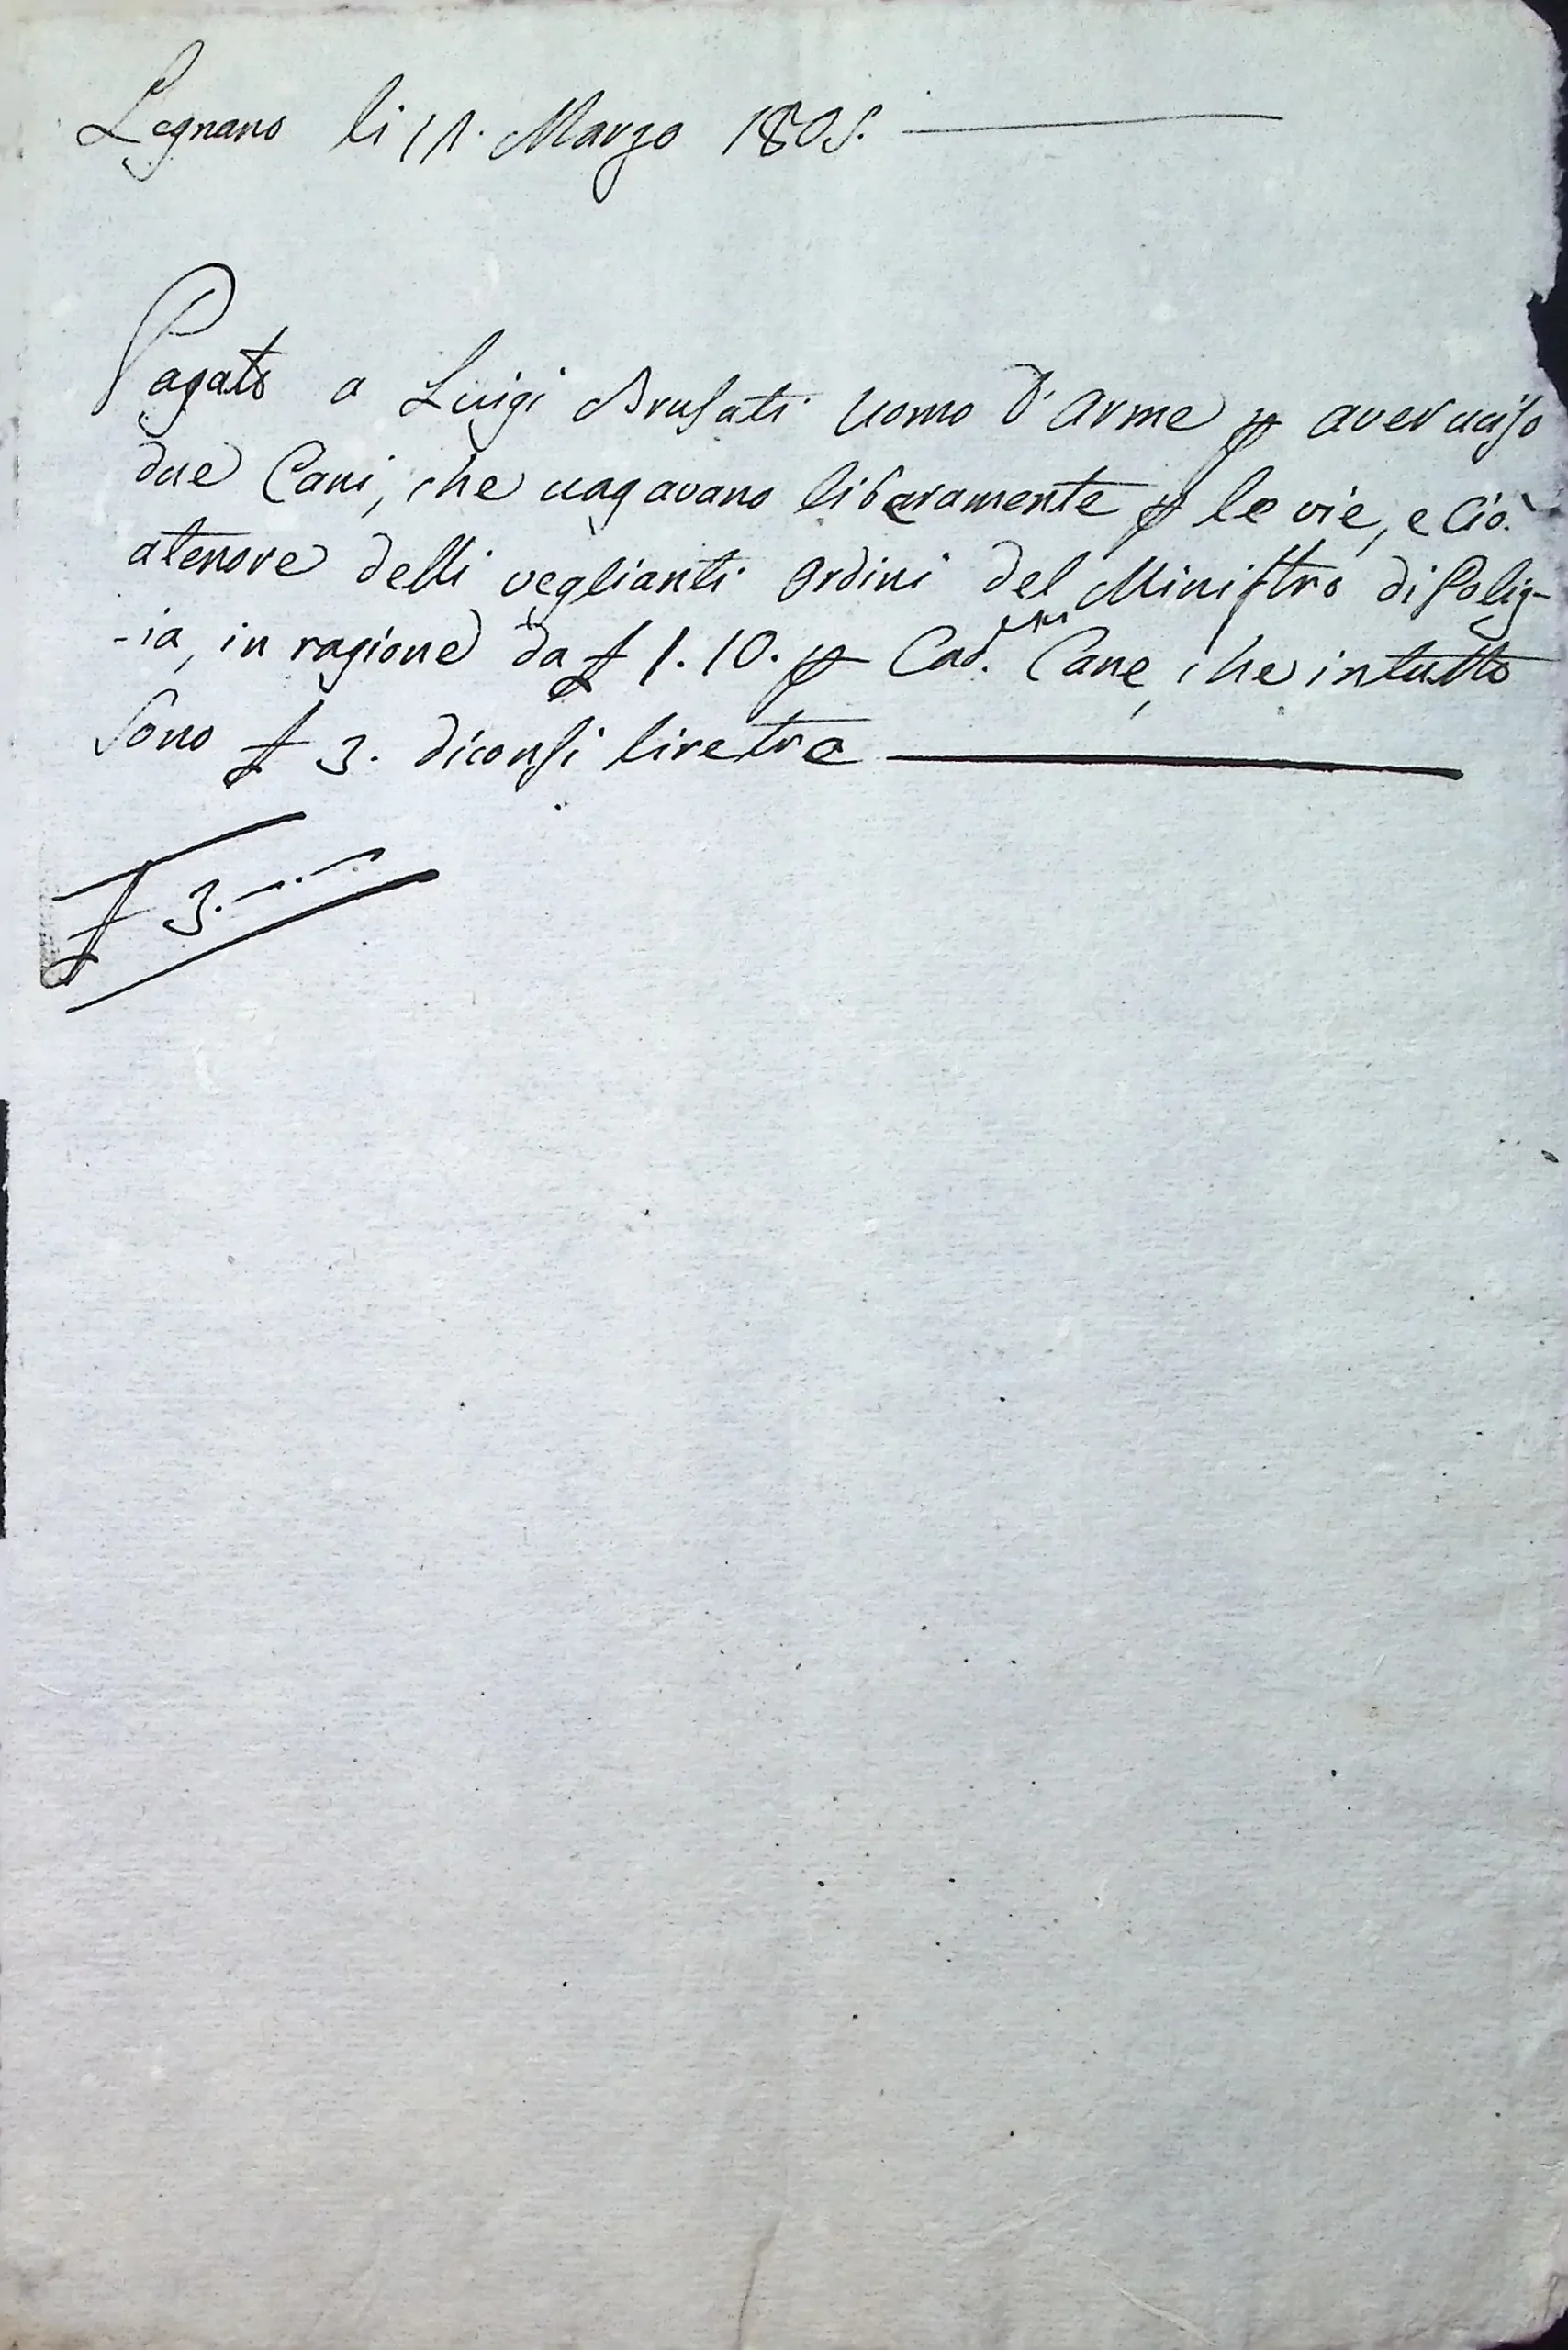 Legnano li 11. Marzo 1805.
Pagato a Luigi Brusati Uomo d'Arme p aver uciso
due Cani, che uagavano liberamente p le vie, e Ciò.
atenore delli veglianti Ordini del Ministro di Poliz-
-ia, in ragione da £ 1. 10. p Cad. Cane, che in tutto
Sono £ 3. diconsi lire tre
£ 3. — . —